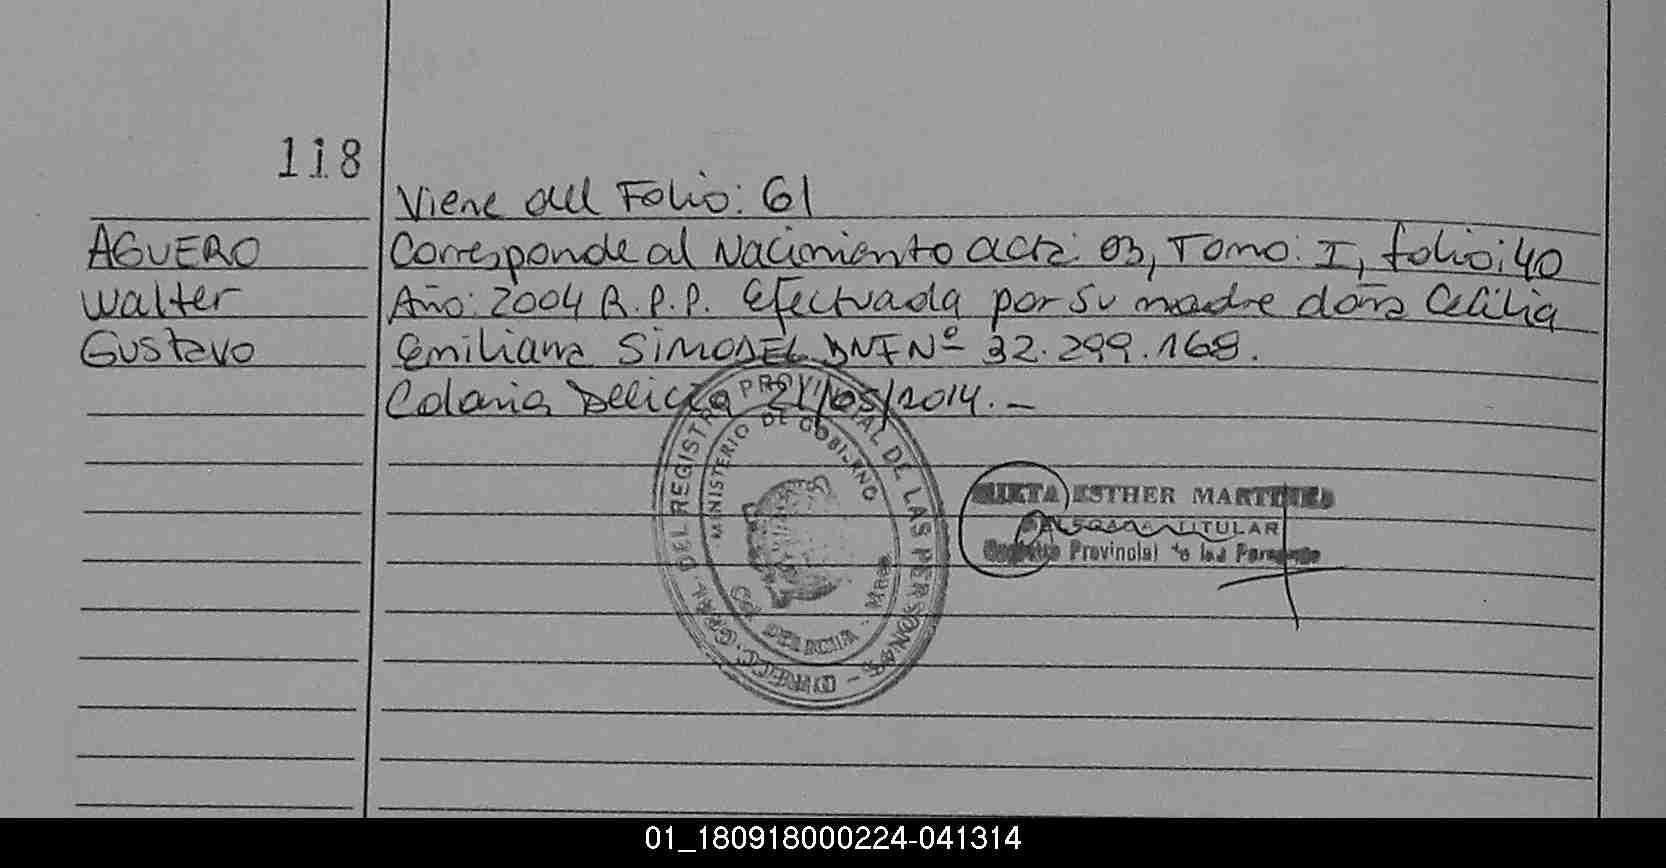 118
Viene del Folio: 61
AGUERO
Walter
Gustavo
Corresponde al Nacimiento acta: 03, Tomo: I, folio: 40
Año: 2004 R.P.P. Efectuada por su madre doña Cecilia
Emiliana SIMODEL DNI Nº 32.299.168.
Colonia Delicia 21/05/2014. –
DIRECC. GRAL. DEL REGISTRO PROVINCIAL DE LAS PERSONAS -
MINISTERIO DE GOBIERNO
ESTHER MARTINEZ
TITULAR
Provincial de las Personas
01_180918000224-041314